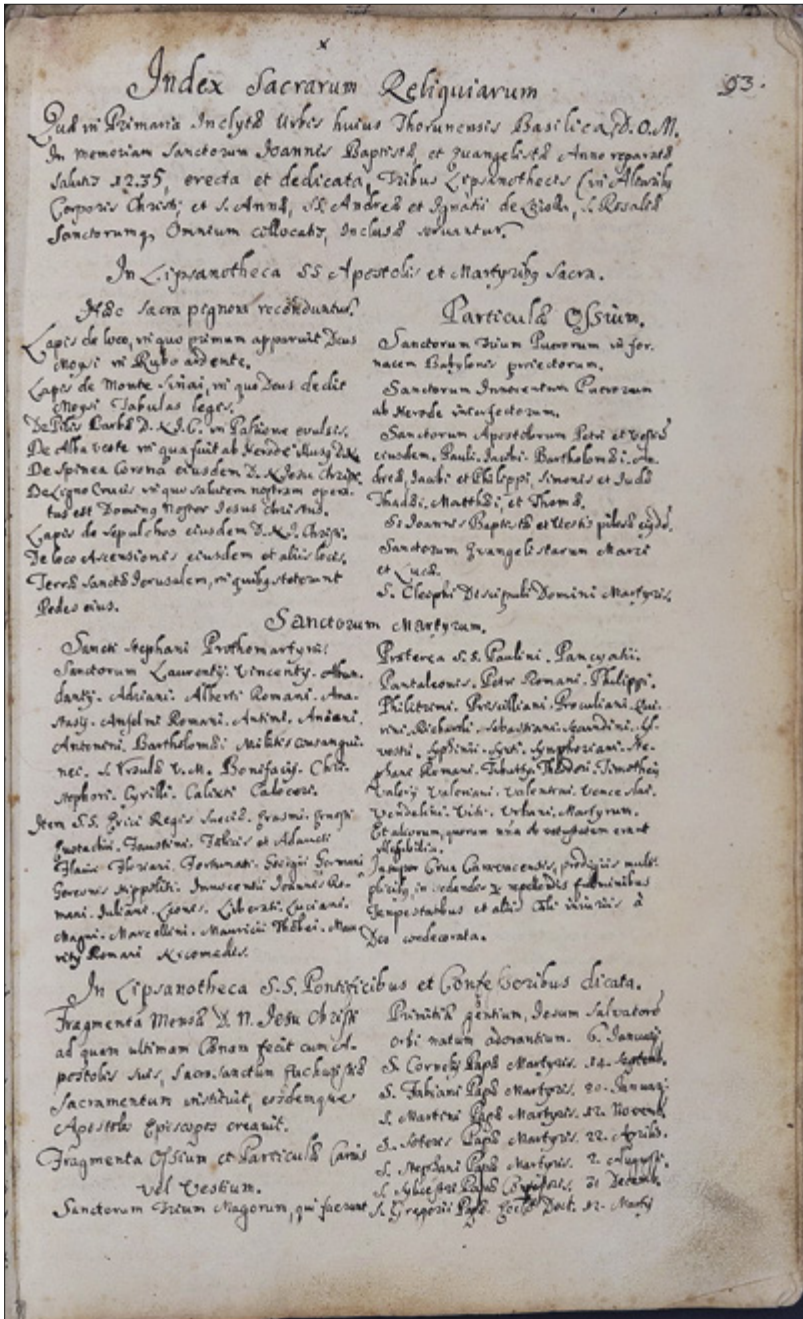 Index Sacrarum Reliquiarum
53.
Quæ in Primaria Inclytæ Urbis huius Thorunensis Basilica, D.O.M.
In memoriam Sanctorum Ioannis Baptistæ, et Evangelistæ Anno reparatæ
Salutis 1235, erecta et dedicata, Tribus Lipsanothecis (in Altaribus
Corporis Christi, et S. Annæ, SS. Andreæ et Ignatii de Loiolla, S. Rosaliæ
Sanctorumq, Omnium collocatis, Inclusæ servantur.
In Lipsanotheca SS Apostolis et Martyribus Sacra.
Hæc Sacra pignora reconduntur.
Lapis de loco, in quo primum apparuit Deus
Moysi in Rubo ardente.
Lapis de Monte Sinai, in quo Deus dedit
Moysi Tabulas legis.
De Pilis Barbæ D.N.I.C. in Passione evulsis.
De Alba veste in qua fuit ab Herode
De Spinea Corona eiusdem D.N. Iesu Christi.
De Ligno Crucis in quo salutem nostram opera-
tus est Dominus Noster Iesus Christus.
Lapis de Sepulchro eiusdem D.N.I. Christi.
De loco Ascensionis eiusdem et aliis locis.
Terræ Sanctæ Ierusalem, in quibus steterunt
Pedes eius.
Particulæ Ossium.
Sanctorum Trium Puerorum in for-
nacem Babylonis proiectorum.
Sanctorum Innocentum Puerorum
ab Herode interfectorum.
Sanctorum Apostolorum Petri et Vestis
eiusdem. Pauli. Iacobi. Bartholomæi. An-
dreæ, Iacobi et Philippi, Simonis et Iudæ
Thaddæi. Matthæi, et Thomæ.
S. Ioannis Baptistæ et Vestis pilosæ
Sanctorum Evangelistarum Marci
et Lucæ.
S. Cleophi Discipuli Domini Martyris.
Sanctorum Martyrum.
Sancti Stephani Prothomartyris.
Sanctorum Laurentij. Vincentij. Abun-
dantij. Adriani. Alberti Romani. Ana-
stasij. Anselmi Romani. Antimi. Aniani.
Antonini. Bartholomæi Militis consangui-
nei. S. Ursulæ V.M. Bonifacij. Chri-
stophori. Cyrilli. Calixti Caloceri.
Item S.S. Erici Regis Sueciæ. Erasmi. Ernesti
Eustachii. Faustini. Felicis et Adaucti
Flavii Floriani. Fortunati. Georgii Germani
Gereonis Hippoliti. Innocentii Ioannis Ro-
mani. Iuliani. Leonis. Liberati. Luciani.
Magni. Marcellini. Mauricii Thebei. Mau-
ritij Romani Nicomedis.
Præterea S.S. Paulini. Pancratii.
Pantaleonis. Petri Romani. Philippi.
Prisciliani. Proculiani. Qui-
rini. Richardi. Sebastiani. Secundini. Syl-
vestri. Symphoriani. Ste-
phani Romani. Theodori. Timothei
Valerij Valeriani. Valentini. Venceslai.
Vendelini. Viti. Urbani. Martyrum.
Et aliorum, quorum præ vetustate erant
Caravacensis, prodigiis multi-
plicibus, in sedandis fulminibus
Tempestatibus et aliis Cæli iniuriis à
Deo condecorata.
In Lipsanotheca S.S. Pontificibus et Confessoribus dicata.
Fragmenta Mensæ D.N. Iesu Christi
ad quam ultimam Cœnam fecit cum A-
postolis suis, Sacro-sanctum Eucharistiæ
Sacramentum instituit, eosdemque
Apostolos Episcopos creavit.
Fragmenta Ossium et Particulæ Carnis
vel Vestium.
Sanctorum Trium Magorum, qui fuerunt
Primitiæ gentium, Iesum Salvatorem
orbi natum adorantium. 6. Januarij
S. Cornelij Papæ Martyris. 14. Septemb.
S. Fabiani Papæ Martyris. 20. Januarij
S. Martini Papæ Martyris. 12. Novemb.
S. Soteris Papæ Martyris. 22. Aprilis.
S. Stephani Papæ Martyris. 2. Augusti.
S. Sylvestri Papæ Confessoris. 31 Decemb.
S. Gregorii Papæ Eccles. Doct. 12. Martij